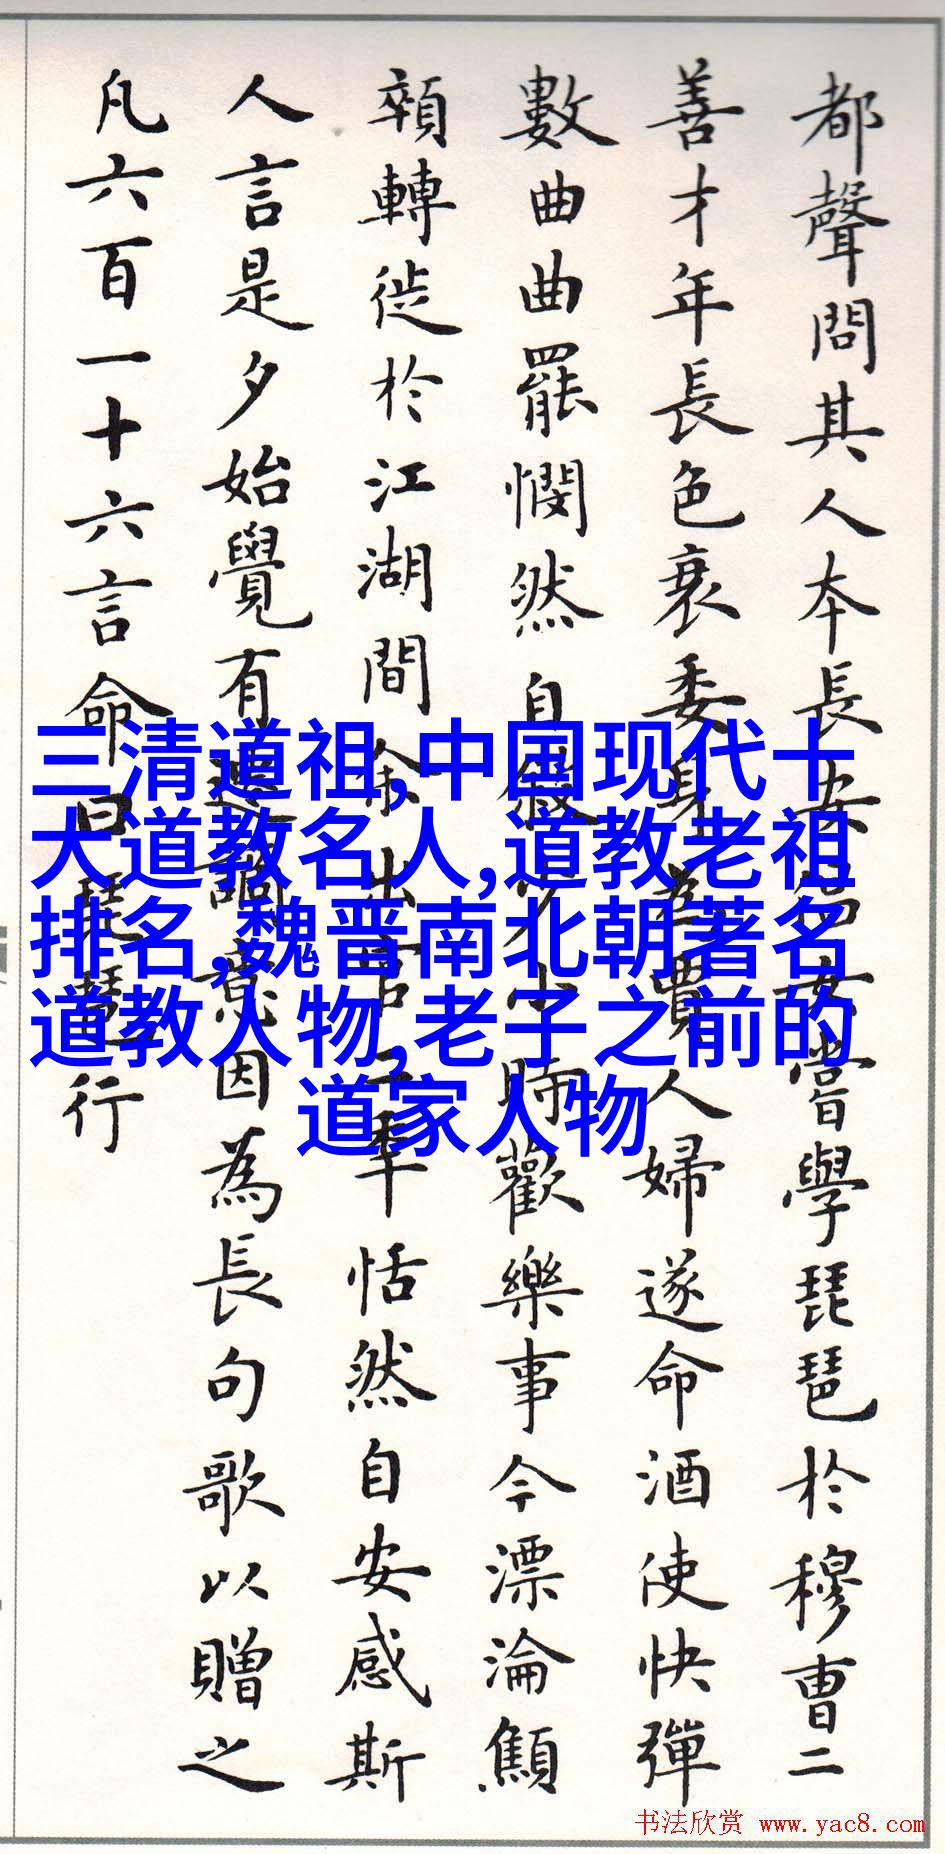 都聲問其人本長安倡女嘗學琵琶於穆曹二
善才年長色衰委身為賈人婦遂命酒使快彈
數曲曲罷憫然自敘少小時歡樂事今漂淪顦
顇轉徙於江湖間余出官二年恬然自安感斯
人言是夕始覺有遷謫意因為長句歌以贈之
凡六百一十六言命曰琵琶行
三清道祖,中国现代十
大道教名人,道教老祖
排名,魏晋南北朝著名
道教人物,老子之前的
道家人物
书法欣赏 www.yac8.com